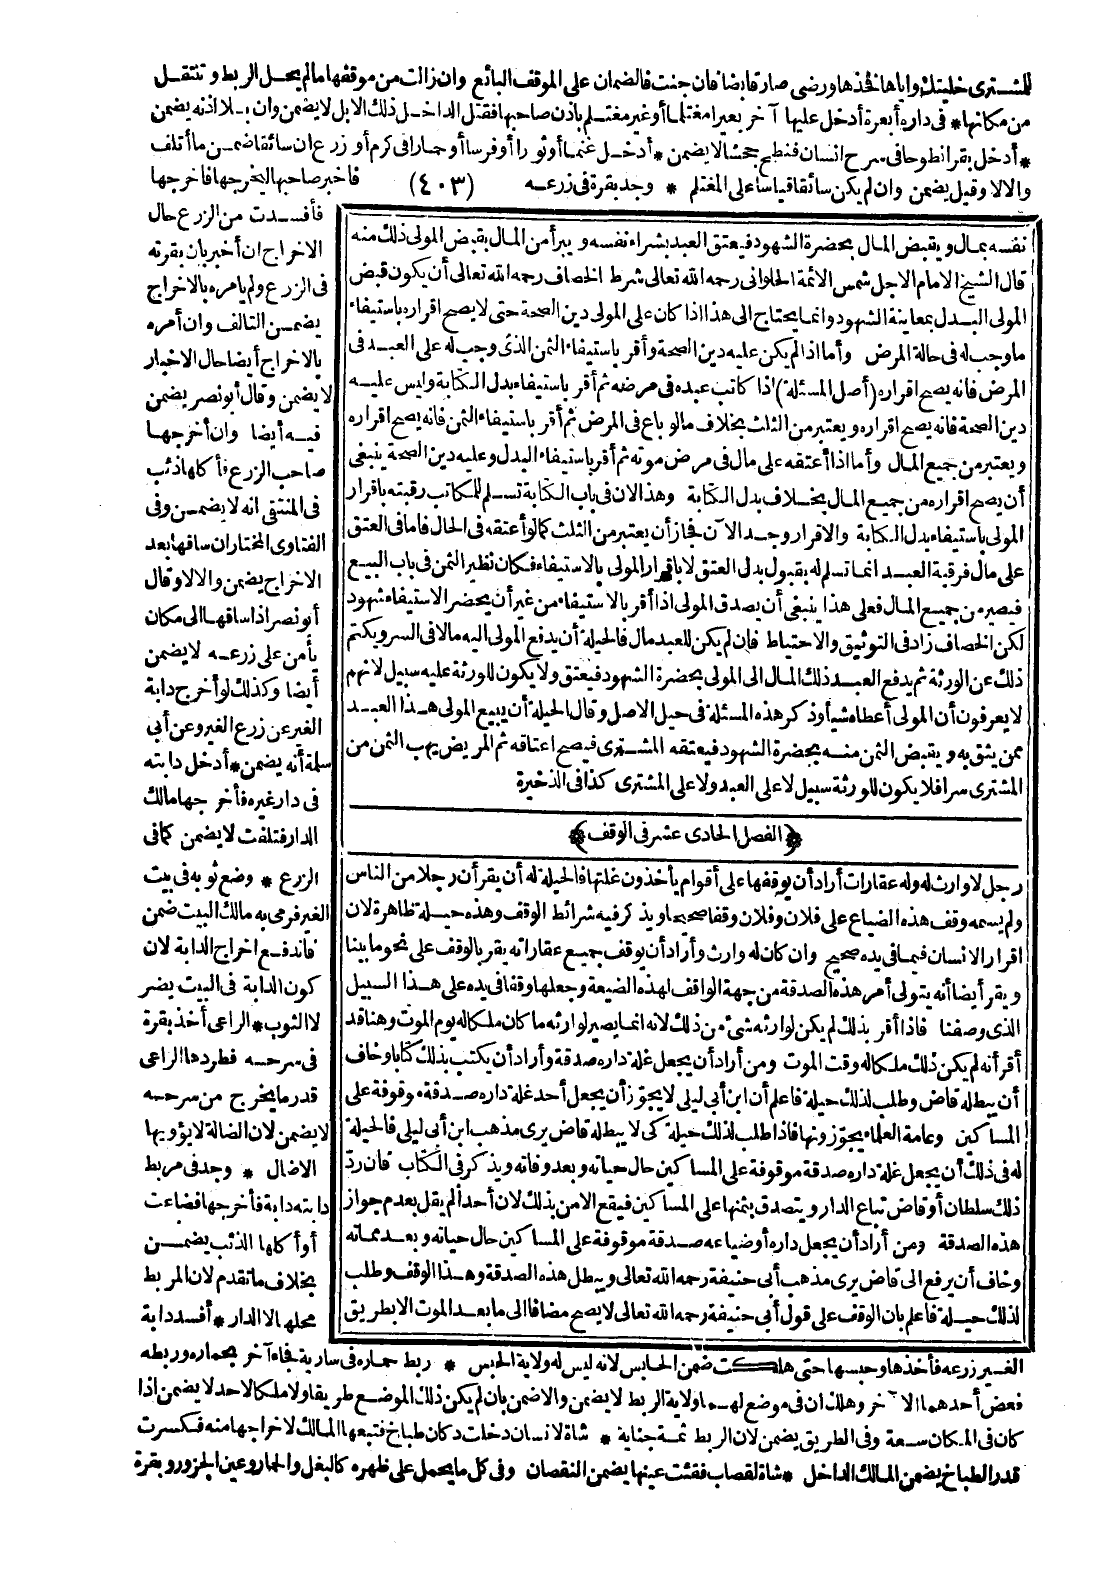 للمشترى خليتك واياها فخذها ورضى صار قابضا فان جنت فالضمان على الموقف البائع وان زالت من موقفها مالم يحل الربط وتنتقل
من مكانها * فى داره أبعرة أدخل عليها آخر بعيرا مغتلما أو غير مغتلم باذن صاحبها فقتل الداخل ذلك الابل لا يضمن وان بلا اذنه يضمن
* أدخل بقرا نطوحا فى سرح انسان فنطح جحشا لا يضمن * أدخل غنما أو ثورا أو فرسا أو حمارا فى كرم أو زرع ان سائقا ضمن ما أتلف
والا لا وقيل يضمن وان لم يكن سائقا قياسا على المغتلم * وجد بقرة فى زرعه (٤٠٣) فاخبر صاحبها ليخرجها فاخرجها
نفسه بمال ويقبض المال بحضرة الشهود فيعتق العبد بشراء نفسه ويبرأ من المال بقبض المولى ذلك منه
قال الشيخ الامام الاجل شمس الائمة الحلوانى رحمه الله تعالى شرط الخصاف رحمه الله تعالى أن يكون قبض
المولى البدل بمعاينة الشهود وانما يحتاج الى هذا اذا كان على المولى دين الصحة حتى لا يصح اقراره باستيفاء
ما وجب له فى حالة المرض وأما اذا لم يكن عليه دين الصحة وأقر باستيفاء الثمن الذى وجب له على العبد فى
المرض فانه يصح اقراره (أصل المسئلة) اذا كاتب عبده فى مرضه ثم أقر باستيفاء بدل الكتابة وليس عليه
دين الصحة فانه يصح اقراره ويعتبر من الثلث بخلاف ما لو باع فى المرض ثم أقر باستيفاء الثمن فانه يصح اقراره
ويعتبر من جميع المال وأما اذا أعتقه على مال فى مرض موته ثم أقر باستيفاء البدل وعليه دين الصحة ينبغى
أن يصح اقراره من جميع المال بخلاف بدل الكتابة وهذا لان فى باب الكتابة تسلم للمكاتب رقبته باقرار
المولى باستيفاء بدل الكتابة والاقرار وجد الآن فجاز أن يعتبر من الثلث كما لو أعتقه فى الحال فاما فى العتق
على مال فرقبة العبد انما تسلم له بقبول بدل العتق لا باقرار المولى بالاستيفاء فكان نظير الثمن فى باب البيع
فيصير من جميع المال فعلى هذا ينبغى أن يصدق المولى اذا أقر بالاستيفاء من غير أن يحضر الاستيفاء شهود
لكن الخصاف زاد فى التوثيق والاحتياط فان لم يكن للعبد مال فالحيلة أن يدفع المولى اليه مالا فى السر ويكتم
ذلك عن الورثة ثم يدفع العبد ذلك المال الى المولى بحضرة الشهود فيعتق ولا يكون للورثة عليه سبيل لانهم
لا يعرفون أن المولى أعطاه شيأ وذكر هذه المسئلة فى حيل الاصل وقال الحيلة أن يبيع المولى هذا العبد
ممن يثق به ويقبض الثمن منه بحضرة الشهود فيعتقه المشترى فيصح اعتاقه ثم المريض يهب الثمن من
المشترى سرا فلا يكون للورثة سبيل لا على العبد ولا على المشترى كذا فى الذخيرة
﴿الفصل الحادى عشر فى الوقف﴾
رجل لا وارث له وله عقارات أراد أن يوقفها على أقوام يأخذون غلتها فالحيلة له أن يقر أن رجلا من الناس
ولم يسمه وقف هذه الضياع على فلان وفلان وقفا صحيحا ويذكر فيه شرائط الوقف وهذه حيلة ظاهرة لان
اقرار الانسان فيما فى يده صحيح وان كان له وارث وأراد أن يوقف جميع عقاراته يقر بالوقف على نحو ما بينا
ويقر أيضا أنه يتولى أمر هذه الصدقة من جهة الواقف لهذه الضيعة وجعلها وقفا فى يده على هذا السبيل
الذى وصفنا فاذا أقر بذلك لم يكن لوارثه شىء من ذلك لانه انما يصير لوارثه ما كان ملكا له يوم الموت وهنا قد
أقر أنه لم يكن ذلك ملكا له وقت الموت ومن أراد أن يجعل غلة داره صدقة وأراد أن يكتب بذلك كتابا وخاف
أن يبطله قاض وطلب لذلك حيلة فاعلم أن ابن أبى ليلى لا يجوّز أن يجعل أحد غلة داره صدقة موقوفة على
المساكين وعامة العلماء يجوّزونها فاذا طلب لذلك حيلة كى لا يبطله قاض يرى مذهب ابن أبى ليلى فالحيلة
له فى ذلك أن يجعل غلة داره صدقة موقوفة على المساكين حال حياته وبعد وفاته ويذكر فى الكتاب فان ردّ
ذلك سلطان أو قاض تباع الدار ويتصدق بثمنها على المساكين فيقع الامن بذلك لان أحدا لم يقل بعدم جواز
هذه الصدقة ومن أراد أن يجعل داره أو ضياعه صدقة موقوفة على المساكين حال حياته وبعد مماته
وخاف أن يرفع الى قاض يرى مذهب أبى حنيفة رحمه الله تعالى ويبطل هذه الصدقة وهذا الوقف وطلب
لذلك حيلة فاعلم بان الوقف على قول أبى حنيفة رحمه الله تعالى لا يصح مضافا الى ما بعد الموت الا بطريق
فأفسدت من الزرع حال
الاخراج ان أخبر بان بقرته
فى الزرع ولم يامره بالاخراج
يضمن التالف وان أمره
بالاخراج أيضا حال الاخبار
لا يضمن وقال أبو نصر يضمن
فيه أيضا وان أخرجها
صاحب الزرع فأكلها ذئب
فى المنتقى انه لا يضمن وفى
الفتاوى المختار ان ساقها بعد
الاخراج يضمن والا لا وقال
أبو نصر اذا ساقها الى مكان
يأمن على زرعه لا يضمن
أيضا وكذلك لو أخرج دابة
الغير عن زرع الغير وعن أبى
سلمة أنه يضمن * أدخل دابته
فى دار غيره فأخرجها مالك
الدار فتلفت لا يضمن كما فى
الزرع * وضع ثوبه فى بيت
الغير فرمى به مالك البيت ضمن
فاندفع اخراج الدابة لان
كون الدابة فى البيت يضر
لا الثوب * الراعى أخذ بقرة
فى سرحه فطردها الراعى
قدر ما يخرج من سرحه
لا يضمن لان الضالة لا يؤويها
الا ضال * وجد فى مربط
دابته دابة فأخرجها فضاعت
أو أكلها الذئب يضمن
بخلاف ما تقدم لان المربط
محلها الا الدار * أفسد دابة
الغير زرعه فأخذها وحبسها حتى هلكت ضمن الحابس لانه ليس له ولاية الحبس * ربط حماره فى سارية فجاء آخر بحماره وربطه
فعض أحدهما الآخر وهلك ان فى موضع لهما ولاية الربط لا يضمن والا ضمن بان لم يكن ذلك الموضع طريقا ولا ملكا لاحد لا يضمن اذا
كان فى المكان سعة وفى الطريق يضمن لان الربط ثمة جناية * شاة لانسان دخلت دكان طباخ فتبعها المالك لاخراجها منه فكسرت
قدر الطباخ يضمن المالك الداخل * شاة لقصاب فقئت عينها يضمن النقصان وفى كل ما يحمل على ظهره كالبغل والحمار وعين الجزور وبقرة